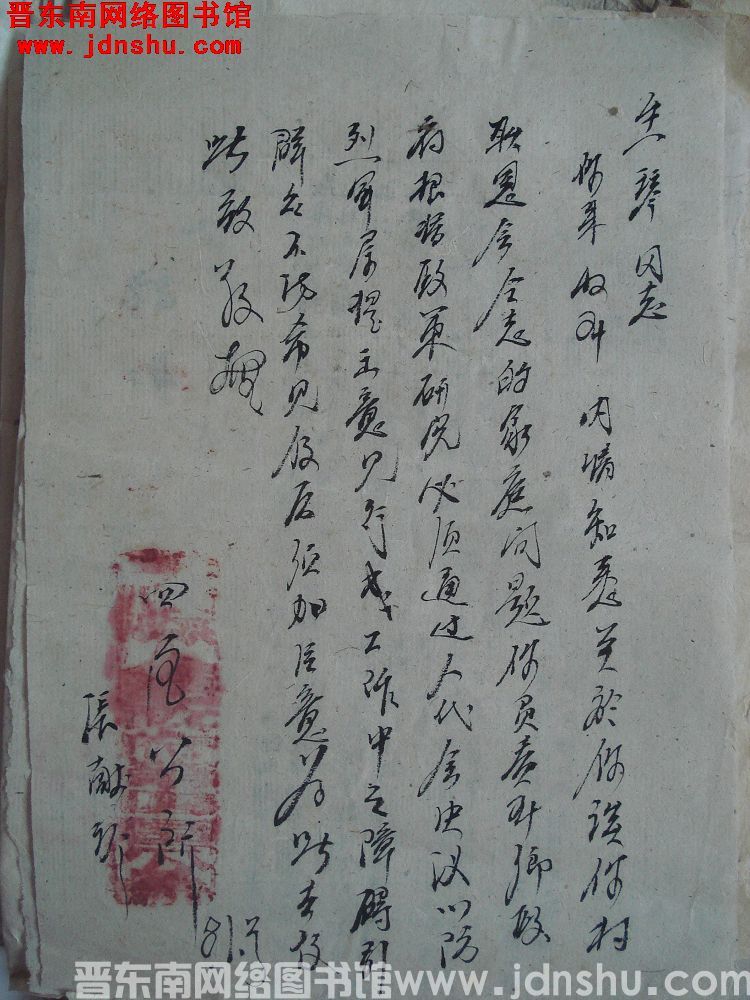 晋东南网络图书馆
www.jdnshu.com
琴同志
你来的升 内情知悉关於你谈你村
耿思会仝志的家庭问题你员责升鄉政
府根据政策研究必须通过人代会决议以防
烈军属提主意见行成工作中之障碍引
群众不防希见候后须加注意为此专复
此致 敬礼
四區公所
張献
晋东南网络图书馆 www.jdnshu.com